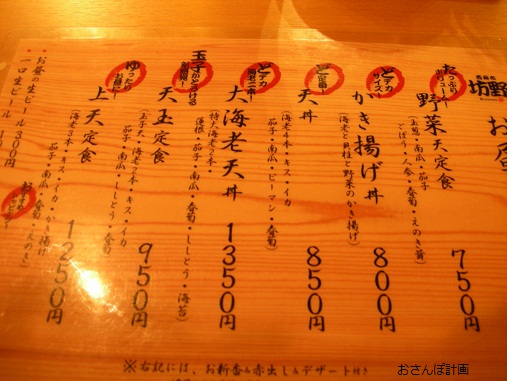 坊野
お昼
たっぷり
野菜天定食
(玉葱・南瓜・茄子
ごぼう・人参・春菊・えのき茸)
750円
ドデカ
サイズ!
かき揚げ丼
(海老と貝柱と野菜のかき揚げ)
800円
ど定番!
天丼
(海老2本・キス・イカ
茄子・南瓜・ピーマン・春菊)
850円
ドデカ
大海老天丼
(特大海老2本
蓮根・茄子・南瓜・ししとう・海苔)
1350円
玉子がとろける
天玉定食
(玉子天・海老2本・キス・イカ
茄子・南瓜・ししとう・春菊)
950円
ゆったり
お昼に!
上天定食
(海老3本・キス・イカ・かき揚げ
茄子・南瓜・春菊・えのき)
1250円
・お昼の生ビール 300円
・一口生ビール
※右記には、お新香&赤出し&デザート付き
おさんぽ計画